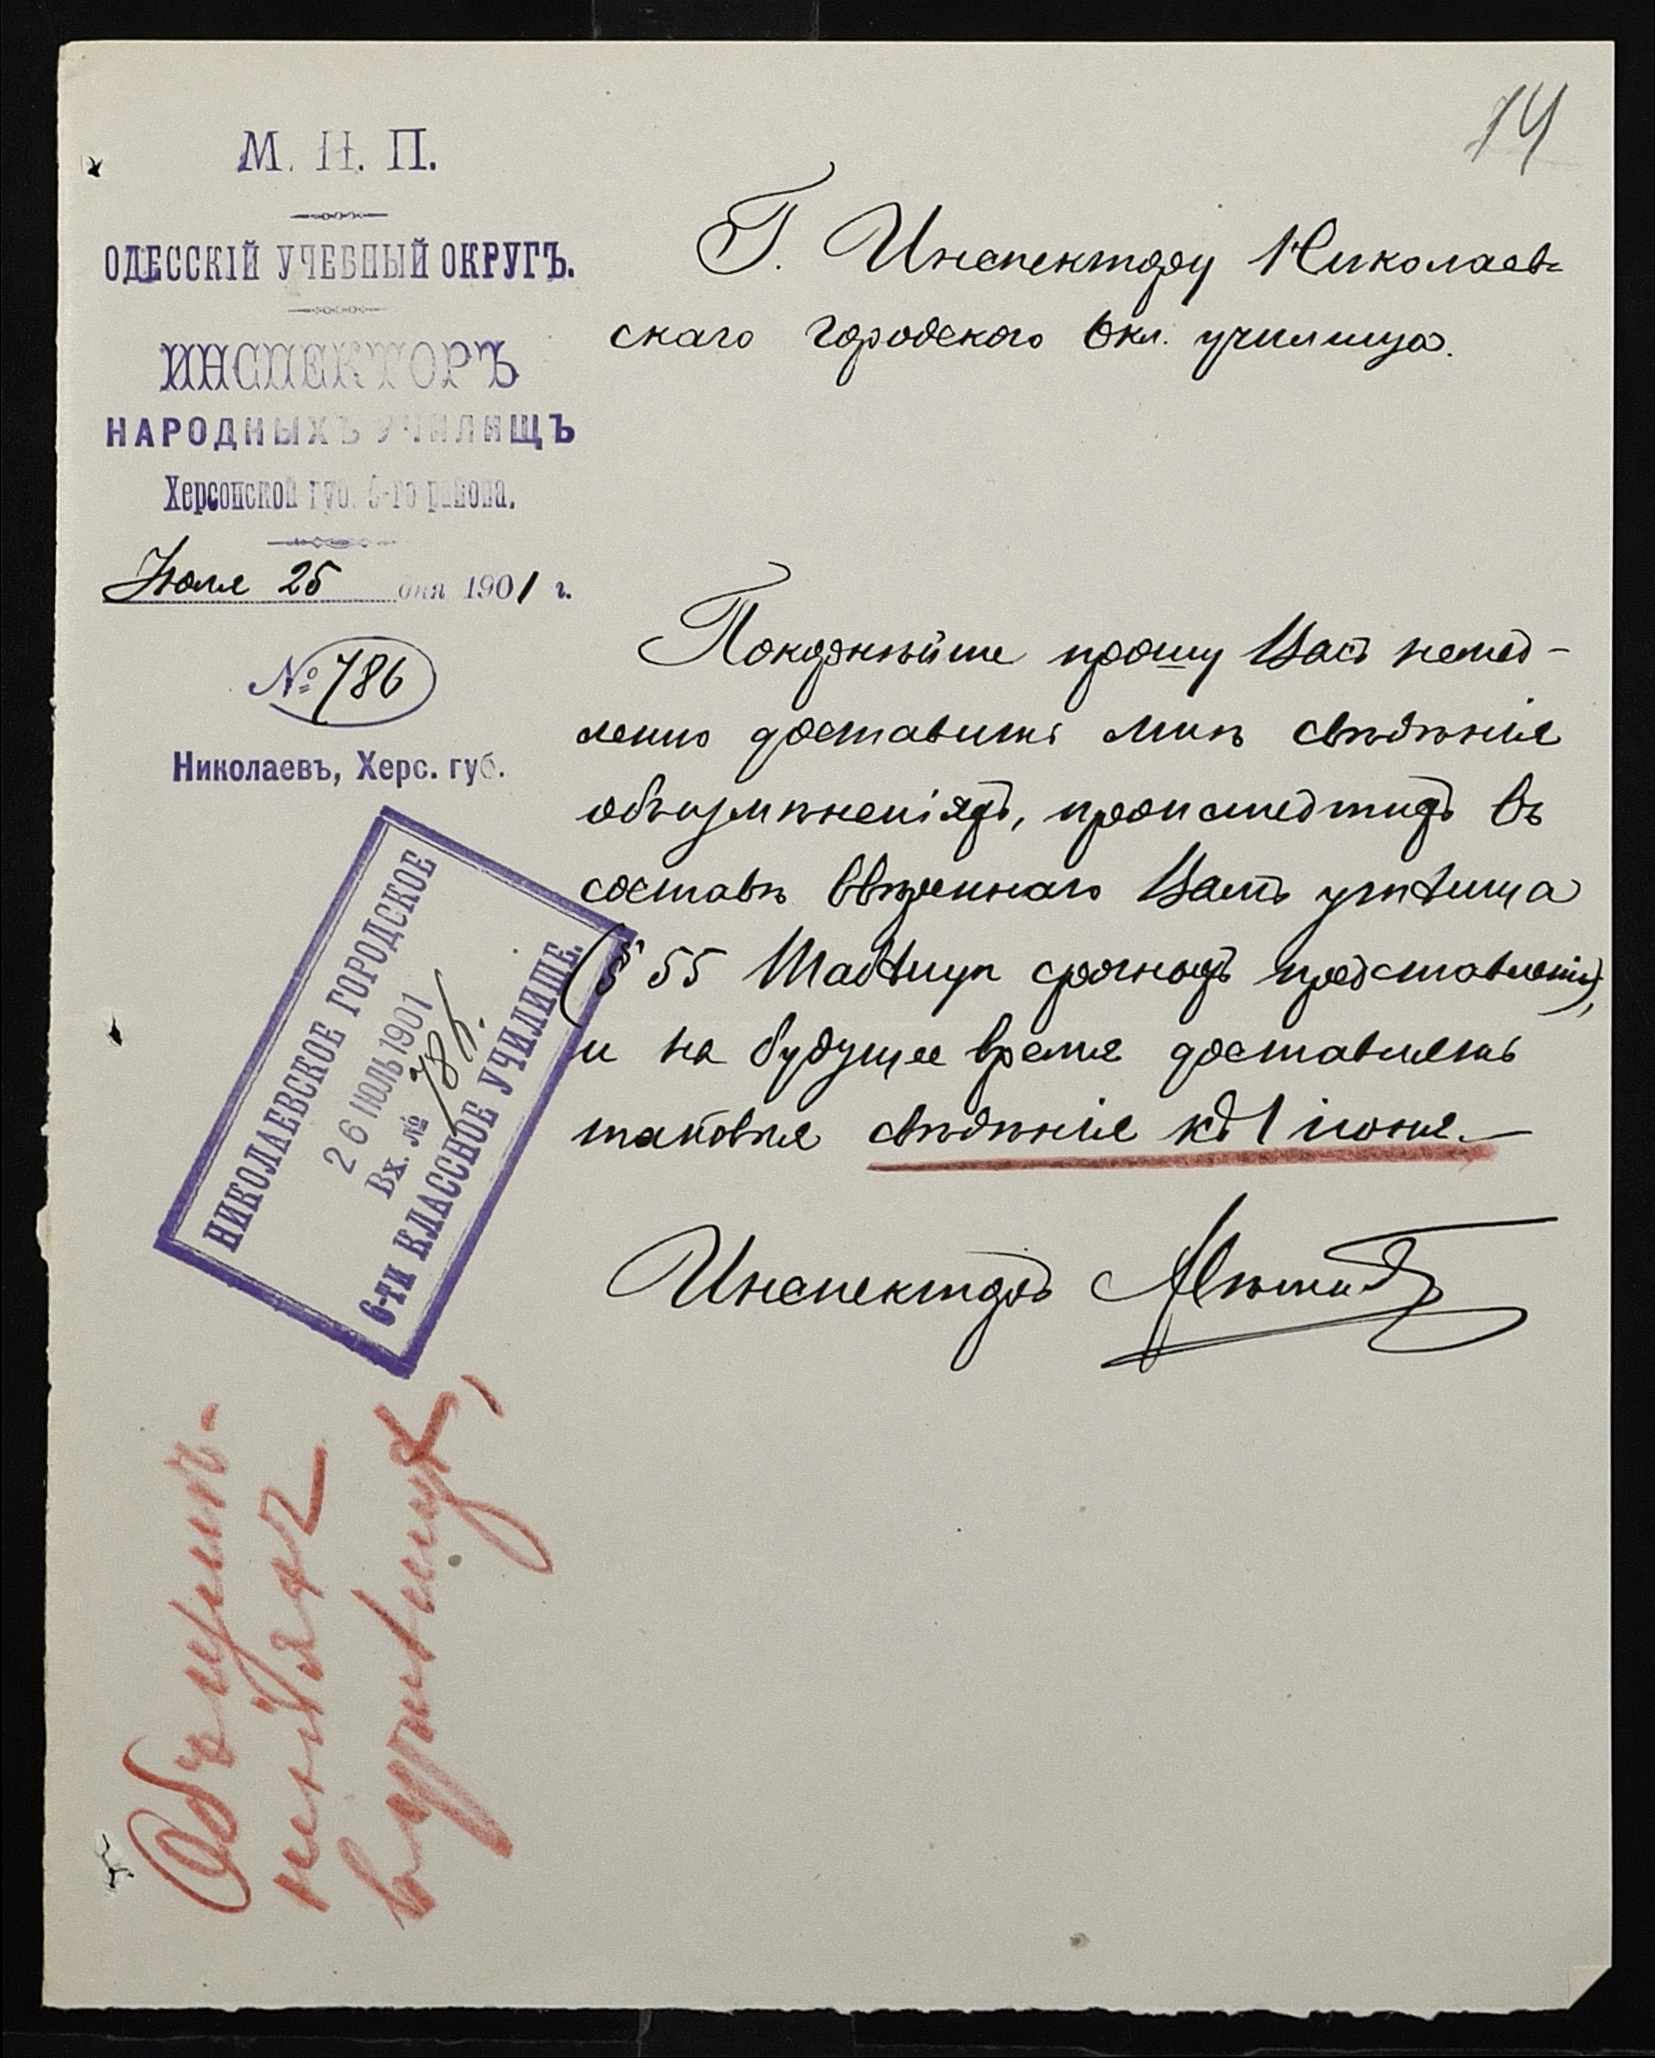 14
М. Н. П.
ОДЕССКІЙ УЧЕБНЫЙ ОКРУГЪ.
ИНСПЕКТОРЪ
НАРОДНЫХЪ УЧИЛИЩЪ
Херсонской губ. 5-го района.
Іюля 25 дня 1901 г.
№ 786
Николаевъ, Херс. губ.
Г. Инспектору Николаев-
скаго городского 6 кл. училища.
Покорнѣйше прошу Васъ немед-
ленно доставить мнѣ свѣдѣнія
объ измѣненіяхъ, происшедшихъ въ
составѣ ввѣреннаго Вамъ училища
(§ 55 Таблицы срочныхъ представленій),
и на будущее время доставлять
таковыя свѣдѣнія къ 1 іюня.
Инспекторъ
НИКОЛАЕВСКОЕ ГОРОДСКОЕ
26 ІЮЛЬ 1901
Вх. № 786.
6-ТИ КЛАССНОЕ УЧИЛИЩЕ.
Объ измѣ-
неніях
в училищѣ